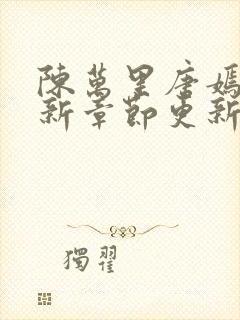 陳萬里唐嫣
新章節更新
獨翟